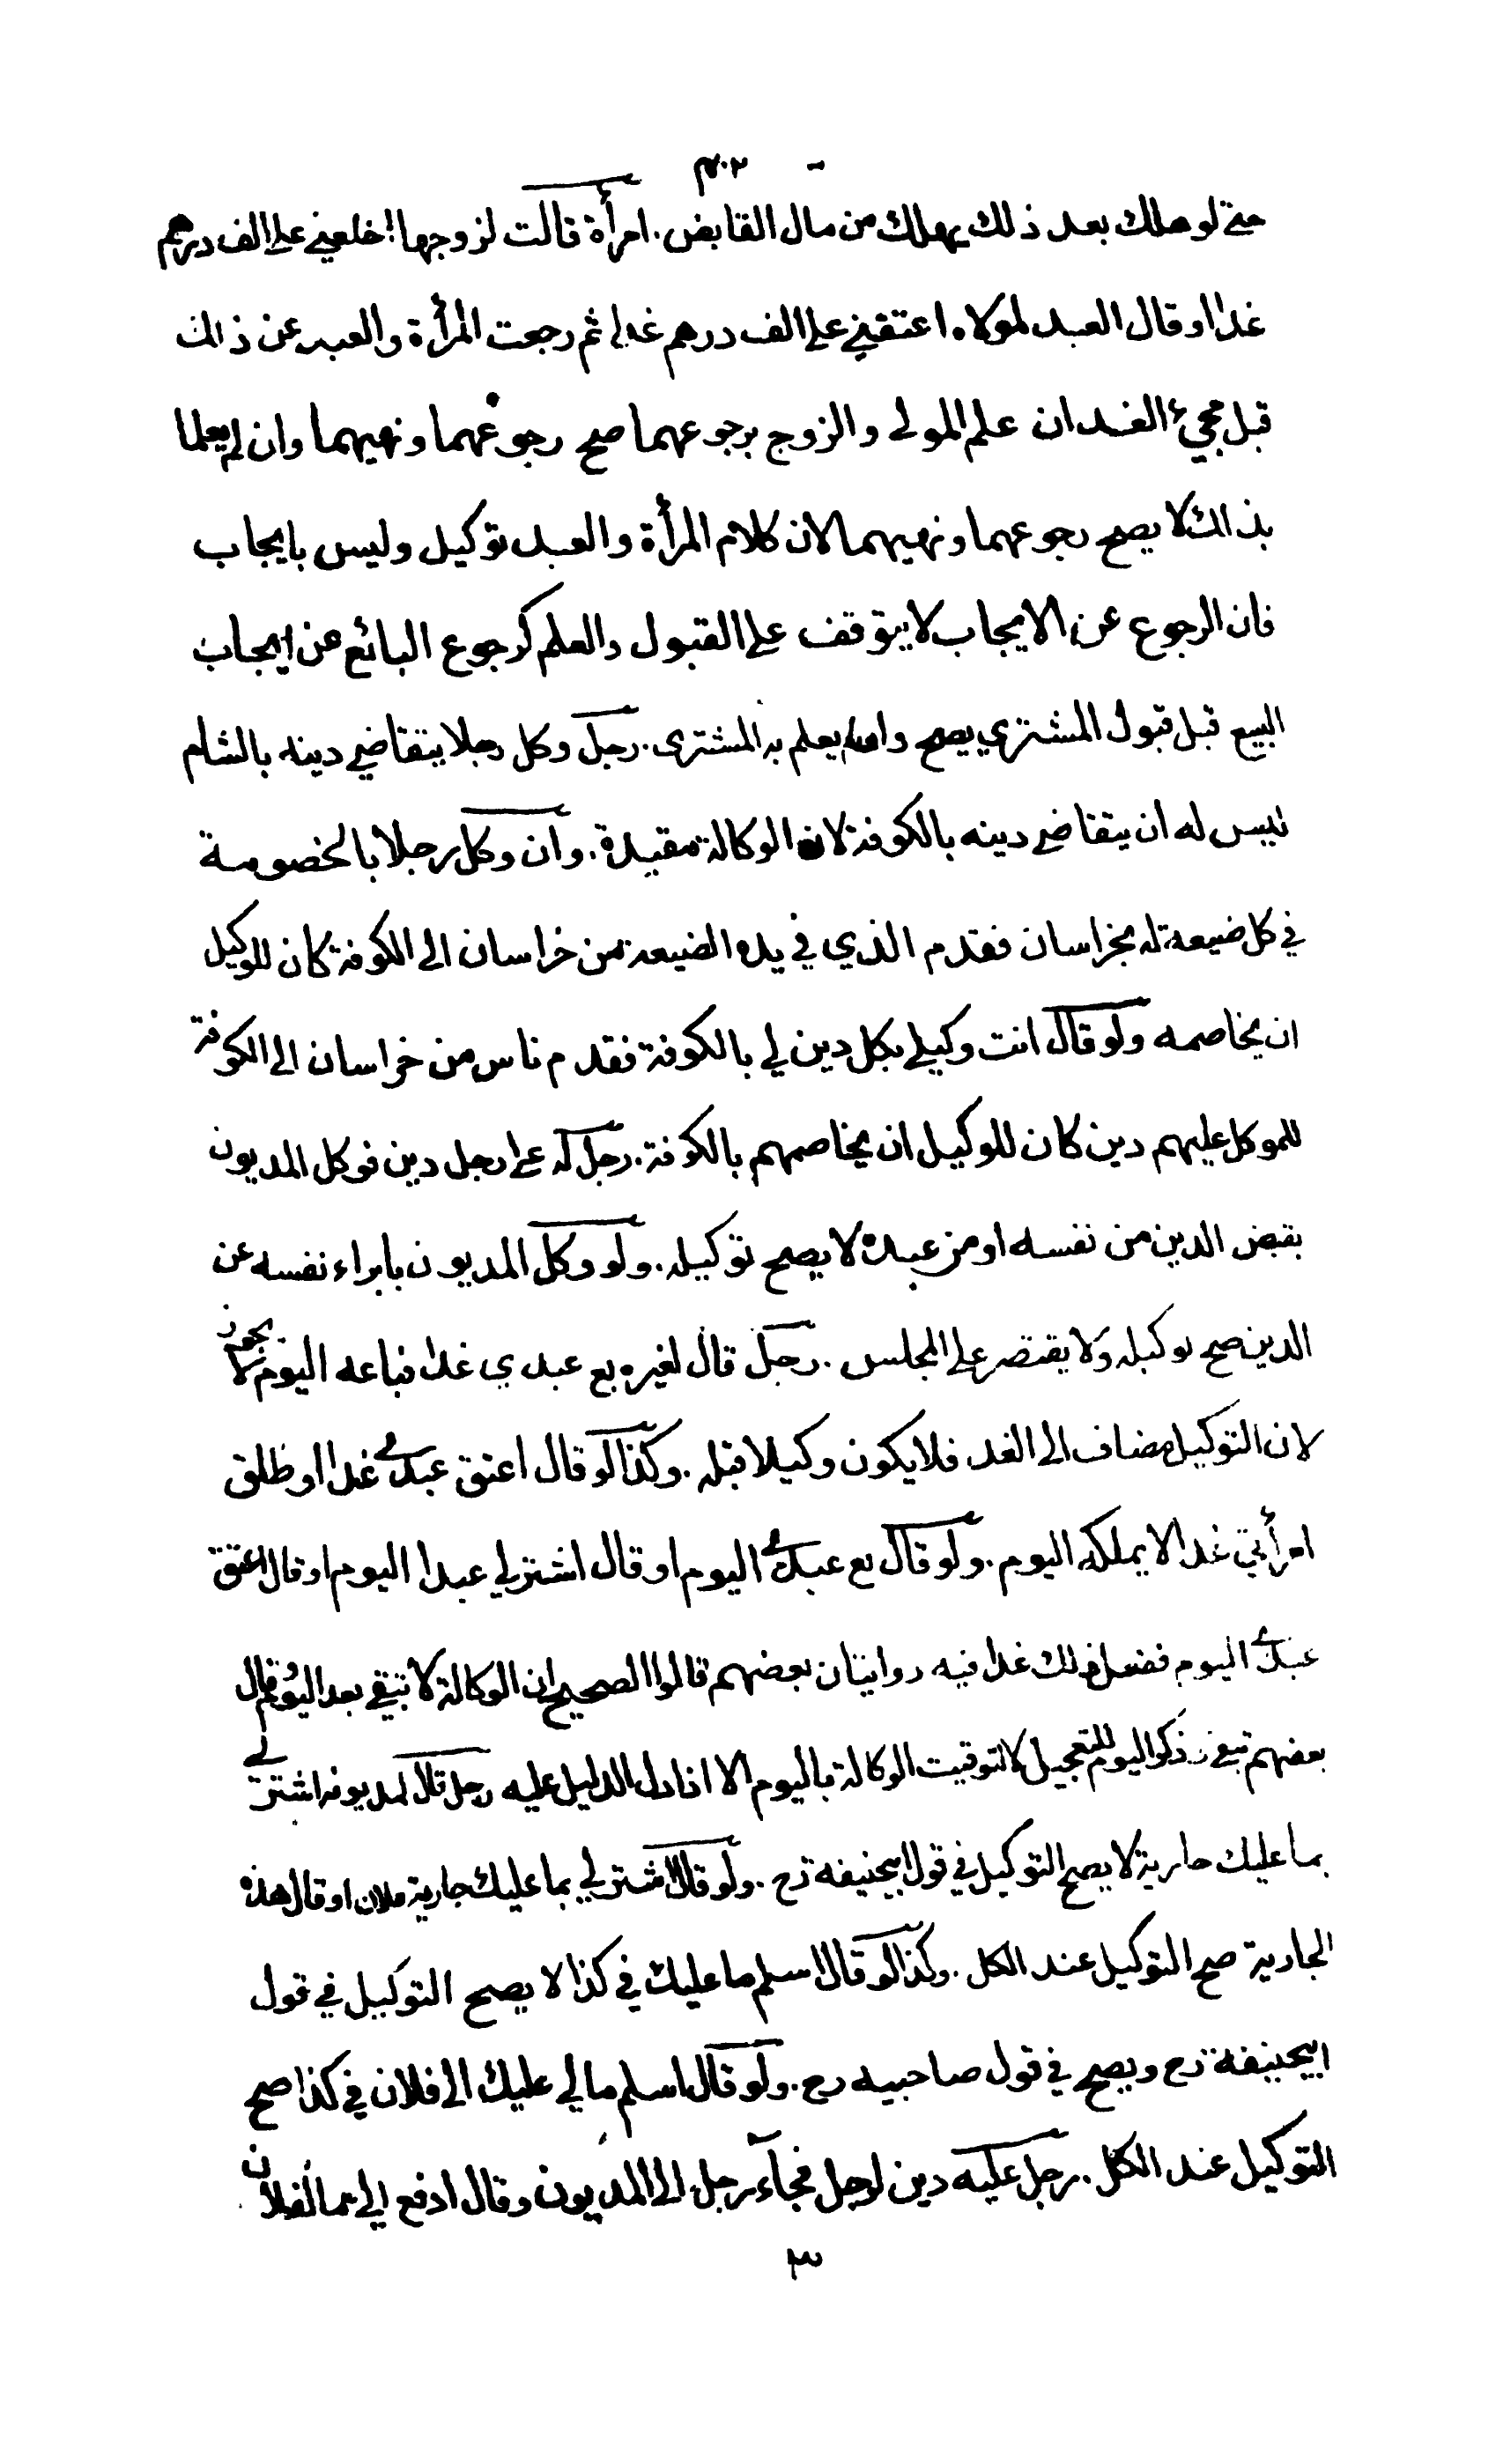 حتى لو هلك بعد ذلك يهلك من مال القابض. امرأة قالت لزوجها اخلعني على الف درهم
غدا او قال العبد لمولاه اعتقني على الف درهم غدا ثم رجعت المرأة والعبد عن ذلك
قبل مجيء الغد ان علم المولى والزوج برجوعهما صح رجوعهما ونهيهما وان لم يعلما
بذلك لا يصح رجوعهما ونهيهما لان كلام المرأة والعبد توكيل وليس بايجاب
فان الرجوع عن الايجاب لا يتوقف على القبول والعلم كرجوع البائع عن ايجاب
البيع قبل قبول المشتري يصح وان لم يعلم به المشترى. رجل وكل رجلا يتقاضى دينه بالشام
ليس له ان يتقاضى دينه بالكوفة لان الوكالة مقيدة. وان وكل رجلا بالخصومة
في كل ضيعة له بخراسان فقدم الذي في يده الضيعة من خراسان الى الكوفة كان للوكيل
ان يخاصمه ولو قال انت وكيلي بكل دين لي بالكوفة فقدم ناس من خراسان الى الكوفة
للموكل عليهم دين كان للوكيل ان يخاصمهم بالكوفة. رجل له على رجل دين فوكل المديون
بقبض الدين من نفسه او من عبده لا يصح توكيله. ولو وكل المديون بابراء نفسه عن
الدين صح توكيله ولا يقتصر على المجلس. رجل قال لغيره بع عبدي غدا فباعه اليوم لا يجوز
لان التوكيل مضاف الى الغد فلا يكون وكيلا قبله. وكذا لو قال اعتق عبدي غدا او طلق
امرأتي غدا لا يملكه اليوم. ولو قال بع عبدي اليوم او قال اشتر لي عبدا اليوم او قال اعتق
عبدي اليوم ففعل ذلك غدا فيه روايتان بعضهم قالوا الصحيح ان الوكالة لا تبقى بعد اليوم وقال
بعضهم تبقى وذكر اليوم للتعجيل لا لتوقيت الوكالة باليوم الا اذا دل الدليل عليه رجل قال لمديونه اشتر لي
بما عليك جارية لا يصح التوكيل في قول ابيحنيفة رح. ولو قال اشتر لي بما عليك جارية فلان او قال هذه
الجارية صح التوكيل عند الكل. وكذا لو قال اسلم ما عليك في كذا لا يصح التوكيل في قول
ابيحنيفة رح ويصح في قول صاحبيه رح. ولو قال اسلم مالي عليك الى فلان في كذا صح
التوكيل عند الكل. رجل عليه دين لرجل فجاء رجل الى المديون وقال ادفع الي ما لفلان